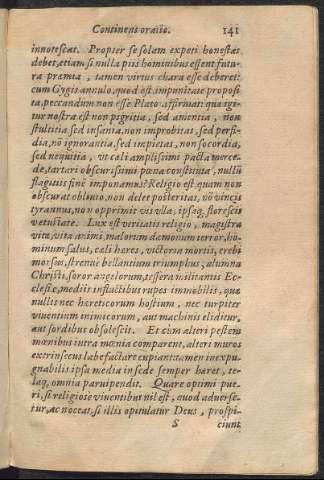 Continens oratio. 141
innotescat. Propter se solam expeti honestas
debet, etiam si nulla piis hominibus essent futu-
ra præmia, tamen virtus chara esse deberet:
cum Gygis annulo, quod est impunitate proposi
ta, peccandum non esse Plato affirmat: qua igi
tur nostra est non pigritia, sed amentia, non
stultitia sed insania, non improbitas, sed perfi-
dia, nō ignorantia, sed impietas, non socordia,
sed nequitia, vt cæli amplissimi pacta merce-
de, tartari obscurissimi pœna constituta, nullū
flagitiis finē imponamus? Religio est quam non
obscurat obliuio, non delet posteritas, nō vincit
tyrannus, non opprimit vis vlla, ipsaq; florescit
vetustate. Lux est veritatis religio, magistra
vitæ, vita animi, malorum dæmonum terror, ho-
minum salus, cæli hæres, victoria mortis, erebi
morsus, strenuè bellantium triumphus, alumna
Christi, soror angelorum, tessera militantis Ec-
clesiæ, mediis in fluctibus rupes immobilis, quæ
nullis nec hæreticorum hostium, nec turpiter
viuentium inimicorum, aut machinis eliditur,
aut sordibus obsolescit. Et cùm alteri pestem
mœnibus intra mœnia comparent, alteri muros
extrinsecus labefactare cupiant: tamen inexpu-
gnabilis ipsa media in sede semper hæret, te-
laq; omnia paruipendit. Quare optimi pue-
ri, si religiosè viuentibus nil est, quod aduerse-
tur, ac noceat, si illis opitulatur Deus, prospi-
S ciunt